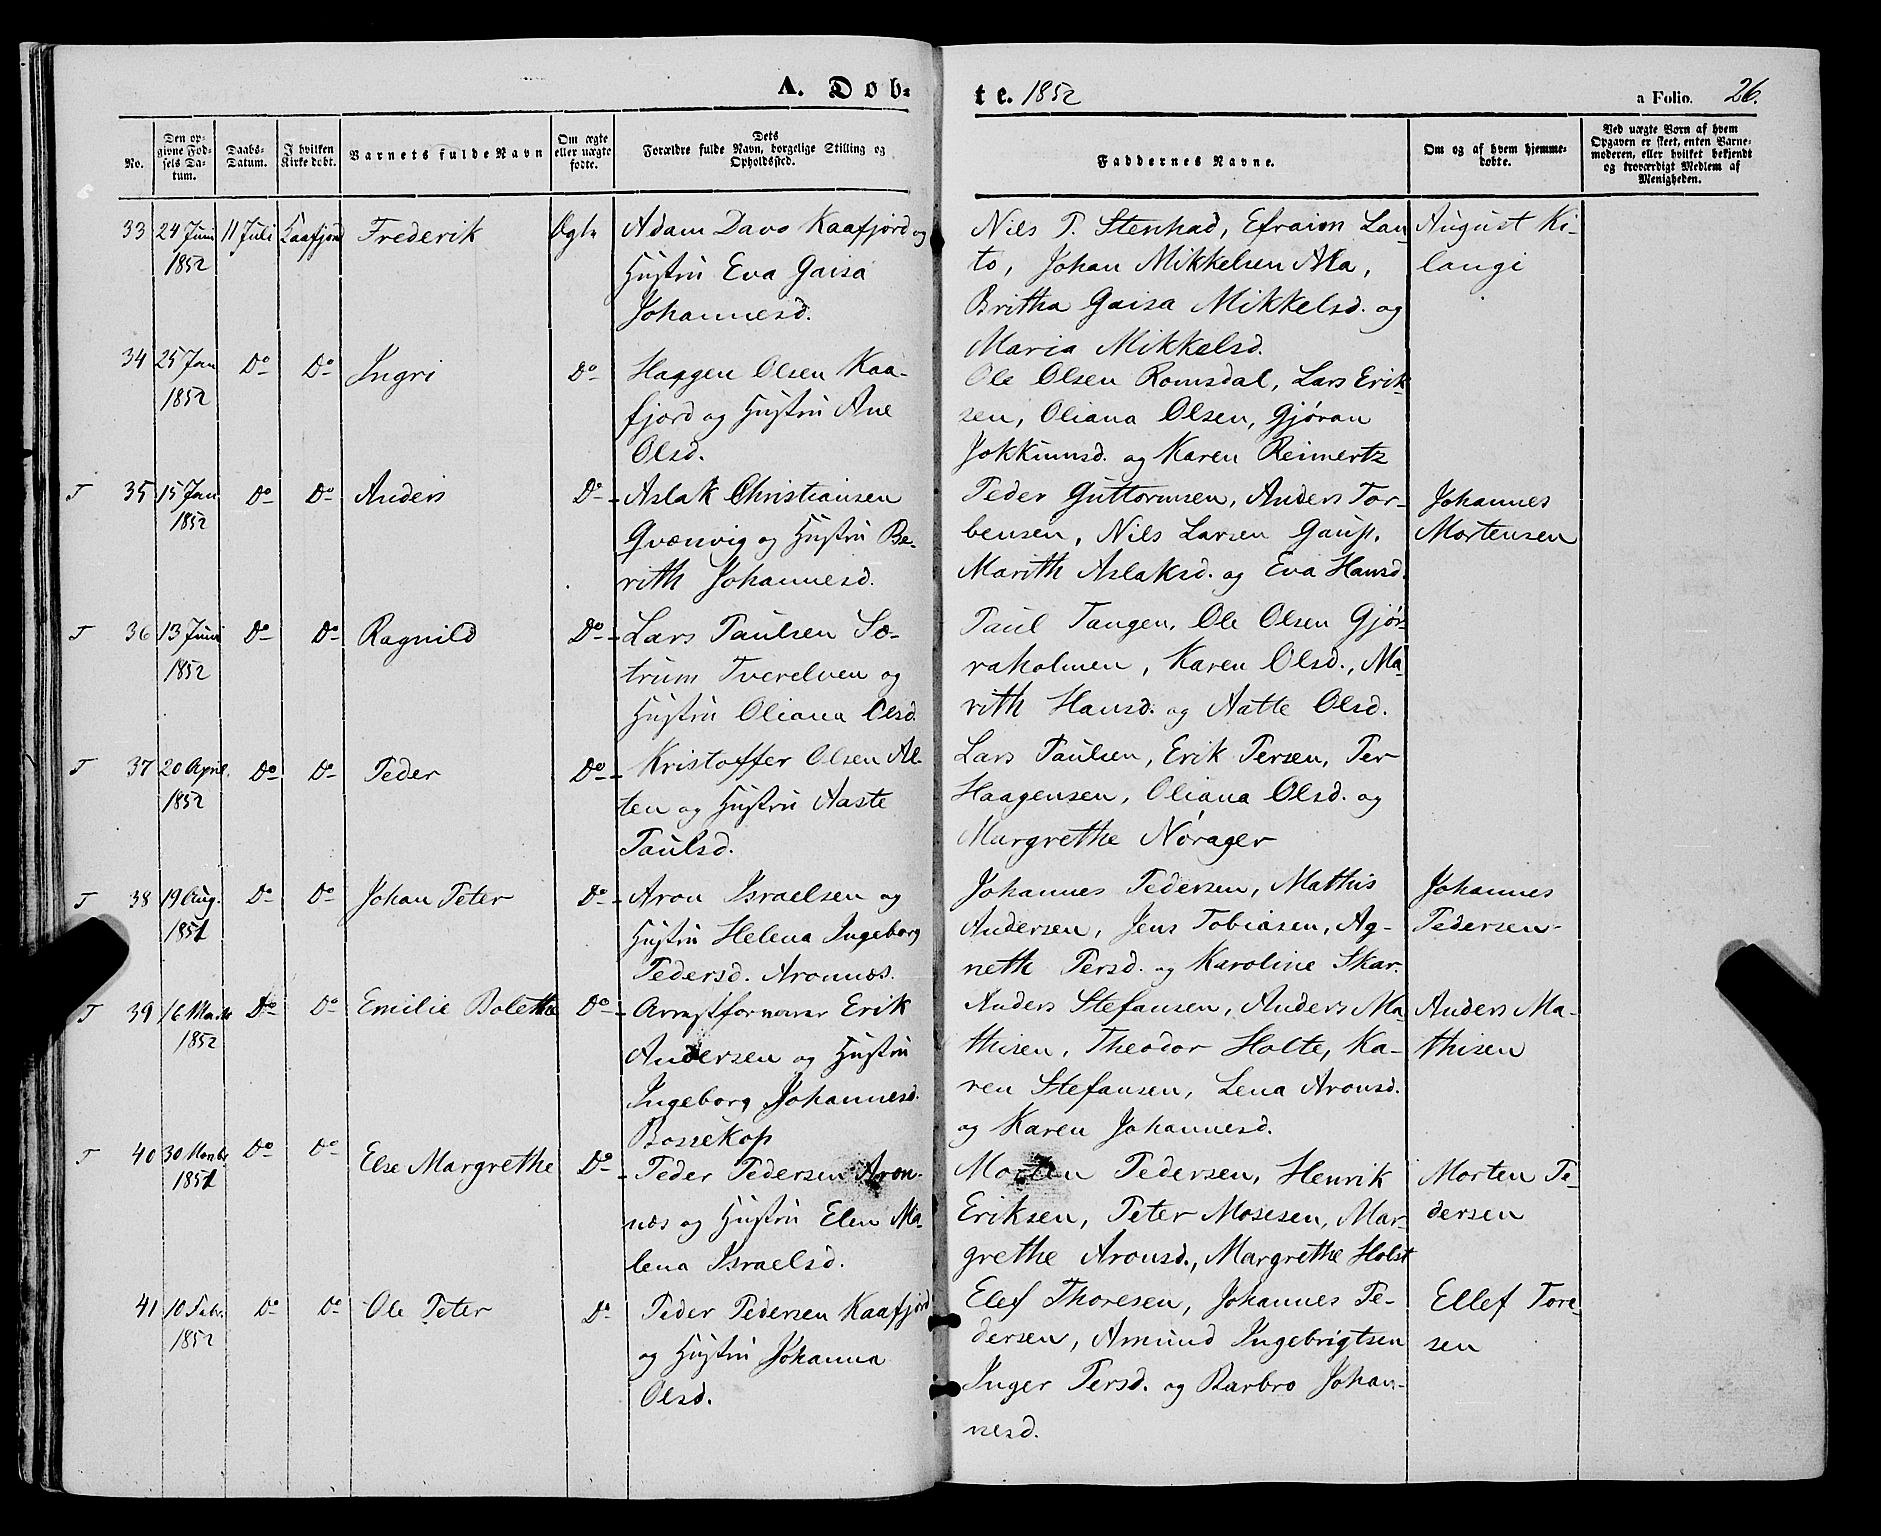 A. Døb-
te. 1852
a Folio. 26.
No.
Den op-
givne Fød-
sels Da-
tum.
Daabs-
Datum.
I hvilken
Kirke døbt.
Barnets fulde Navn
Om ægte
eller uægte
fødte.
Dets
Forældre fulde Navn, borgelige Stilling og
Opholdssted.
Faddernes Navne.
Om og af hvem hjemme-
døbte.
Ved uægte Børn af hvem
Opgaven er skeet, enten Barne-
moderen, eller hvilket bekjendt
og troværdigt Medlem af
Menigheden.
33 24 Juni 11 Juli Kaafjord Frederik Ægte Adam Davo Kaafjord og
1852 Hustru Eva Gaisa
Johannesd.
Nils P. Stenhad, Efraim Lan-
to, Johan Mikkelsen Aka,
Britha Gaisa Mikkelsd. og
Maria Mikkelsd.
August Ki-
langi
34 25 Jan Do Do Ingri Do Haagen Olsen Kaa-
1852 fjord og Hustru Ane
Olsd.
Ole Olsen Romsdal, Lars Erik-
sen, Oliana Olsen, Gjøran
Jokkumsd. og Karen Reimertz
T 35 15 Jan Do Do Anders Do Aslak Christiansen
1852 Qvænvig og Hustru Be-
rith Johannesd.
Peder Guttormsen, Anders Tor-
bensen, Nils Larsen Gaup,
Marith Aslaksd. og Eva Hansd.
Johannes
Mortensen
T 36 13 Juni Do Do Ragnild Do Lars Paulsen Sæ-
1852 trum Tverelven og
Hustru Oliana Olsd.
Paul Tangen, Ole Olsen Gjør-
raholmen, Karen Olsd., Ma-
rith Hansd. og Aatte Olsd.
T 37 20 April Do Do Peder Do Kristoffer Olsen Al-
1852 ten og Hustru Aaste
Paulsd.
Lars Paulsen, Erik Persen, Per
Haagensen, Oliana Olsd. og
Margrethe Nørager
T 38 19 Aug. Do Do Johan Peter Do Aron Israelsen og
1851 Hustru Helena Ingeborg
Pedersd. Aronnæs.
Johannes Pedersen, Mathis
Andersen, Jens Tobiasen, Ag-
neth Persd. og Karoline Skar.
Johannes
Pedersen
T 39 16 Marts Do Do Emilie Bolette Do Arrestforvarer Erik
1852 Andersen og Hustru
Ingeborg Johannesd.
Bossekop
Anders Stefansen, Anders Ma-
thisen, Theodor Holte, Ka-
ren Stefansen, Lena Aronsd.
og Karen Johannesd.
Anders Ma-
thisen
T 40 30 Novbr Do Do Else Margrethe Do Peder Pedersen Aron-
1851 næs og Hustru Elen Ma-
lena Israelsd.
Morten Pedersen, Henrik
Eriksen, Peter Mosesen, Mar-
grethe Aronsd., Margrethe Holst
Morten Pe-
dersen
41 10 Febr. Do Do Ole Peter Do Peder Pedersen Kaafjord
1852 og Hustru Johanna
Olsd.
Elef Thoresen, Johannes Pe-
dersen, Amund Ingebrigtsen
Inger Persd. og Barbro Johan-
nesd.
Ellef Tore-
sen